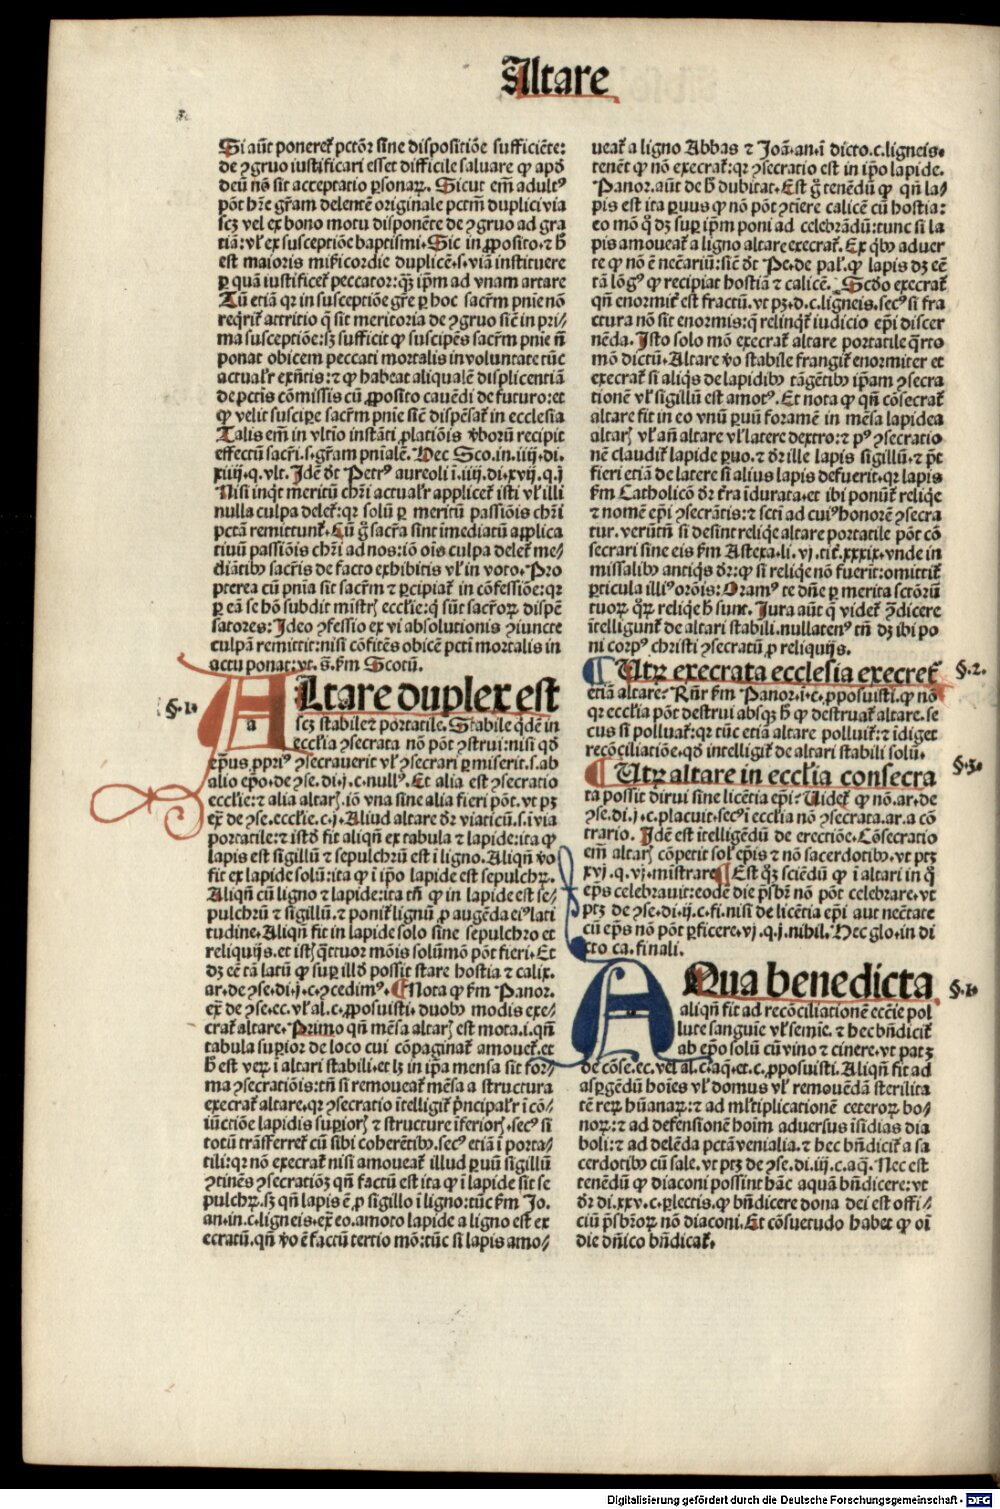 Altare
Si aūt poneret̄ pctōr̄ sine dispositiōe sufficiēte:
de ꝯgruo iustificari esset difficile saluare ꝙ apd̄
deū nō sit acceptatio ꝑsonaꝝ. Sicut em̄ adultꝰ
pōt hr̄e gr̄am delentē originale pctm̄ duplici via
scꝫ vel ex bono motu disponēte de ꝯgruo ad gra
tiā: vl̓ ex susceptiōe baptismi. Sic in ꝓposito. ⁊ h̄
est maioris mīcordie duplicē.s. viā instituere
ꝑ quā iustificet̄ peccator: qꝫ ip̄m ad vnam artare
Tū etiā qꝛ in susceptiōe gr̄e ꝑ hoc sacr̄m pnīe nō
reqrit̄ attritio q̄ sit meritoria de ꝯgruo sic̄ in pri⸗
ma susceptiōe: sꝫ sufficit ꝙ suscipēs sacr̄m pnīe nō
ponat obicem peccati mortalis in voluntate tūc
actual̓r exn̄tis: ⁊ ꝙ habeat aliqualē displicentiā
de pctis cōmissis cū ꝓposito cauēdi de futuro: et
ꝙ velit suscipe sacr̄m pnīe sic̄ dispēsat̄ in ecclesia
Talis em̄ in vltīo instāti ꝓlatiōis v̄boꝝ recipit
effectū sacr̄i.s. gr̄am pnīalē. Hec Sco. in. iiij. di.
xiiij. q. vlt. Idē dt̄ Petrꝰ aureoli ī. iiij. di. xvij. q. j
Nisi inqt meritū chr̄i actual̓r applicet̄ isti vl̓ illi
nulla culpa delet̄: qꝛ solū ꝑ meritū passiōis chr̄i
pctā remittunt̄. Cū g̊ sacr̄a sint īmediatū applica
tiuū passiōis chr̄i ad nos: iō oīs culpa delet̄ me⸗
diātibꝰ sacr̄is de facto exhibitis vl̓ in voto. Pro
pterea cū pnīa sit sacr̄m ⁊ ꝑcipiat̄ in cōfessiōe: qꝛ
ꝑ eā se hō subdit mīstr̄ eccl̓ie: q̄ sūt sacr̄oꝝ dispē
satores: Ideo ꝯfessio ex vi absolutionis ꝯiuncte
culpā remittit: nisi cōfitēs obicē pctī mortalis in
actu ponat: vt. s̄. ẜm Scotū.
§. 1.
Altare duplex est
a
scꝫ stabile ⁊ portatile. Stabile qdē in
eccl̓ia ꝯsecrata nō pōt ꝯstrui: nisi qd̄
ep̄us ꝓpriꝰ ꝯsecrauerit vl̓ ꝯsecrari ꝑmiserit. s. ab
alio ep̄o. de ꝯse. di. j. c. nullꝰ. Et alia est ꝯsecratio
eccl̓ie: ⁊ alia altar̄. iō vna sine alia fieri pōt. vt pꝫ
ex̄ de ꝯse. eccl̓ie. c. j. Aliud altare dr̄ viaticū. s. ī via
portatile: ⁊ istd̄ fit aliqn̄ ex tabula ⁊ lapide: ita ꝙ
lapis est sigillū ⁊ sepulchrū est ī ligno. Aliqn̄ vō
fit ex lapide solū: ita ꝙ ī ip̄o lapide est sepulchꝝ.
Aliqn̄ cū ligno ⁊ lapide: ita tn̄ ꝙ in lapide est se⸗
pulchrū ⁊ sigillū. ⁊ ponit̄ lignū ꝓ augēda eiꝰ lati
tudine. Aliqn̄ fit in lapide solo sine sepulchro et
reliquijs. et istꝫ q̄ttuor mōis solūmō pōt fieri. Et
dꝫ eē tā latū ꝙ suꝑ illd̄ possit stare hostia ⁊ calix.
ar. de ꝯse. di. j. c. ꝯcedimꝰ. Nota ꝙ ẜm Panor.
ex̄ de ꝯse. ec. vl̓ al. c. ꝓposuisti. duobꝰ modis exe⸗
crat̄ altare. Primo qn̄ mēsa altar̄ est mota. i. qn̄
tabula suꝑior de loco cui cōpaginat̄ amouet̄. et
h̄ est veꝝ ī altari stabili. et lꝫ in ip̄a mensa sit for⸗
ma ꝯsecratiōis: tn̄ si remoueat̄ mēsa a structura
execrat̄ altare. qꝛ ꝯsecratio ītelligit̄ pͥncipal̓r ī cō⸗
iūctiōe lapidis suꝑior̄ ⁊ structure īferior̄. secꝰ si
totū trāsferret̄ cū sibi coherētibꝰ. secꝰ etiā ī porta⸗
tili: qꝛ nō execrat̄ nisi amoueat̄ illud ꝑuū sigillū
ꝯtinēs ꝯsecratiōꝫ qn̄ factū est ita ꝙ ī lapide sit se
pulchꝝ. sꝫ qn̄ lapis ē ꝓ sigillo ī ligno: tūc ẜm Jo.
an. in. c. ligneis. ex̄ eo. amoto lapide a ligno est ex
ecratū. qn̄ vō ē factū tertio mō: tūc si lapis amo⸗
ueat̄ a ligno Abbas ⁊ Joā. an. ī dicto. c. ligneis.
tenēt ꝙ nō execrat̄: qꝛ ꝯsecratio est in ip̄o lapide.
Panor. aūt de h̄ dubitat. Est g̊ tenēdū ꝙ qn̄ la⸗
pis est ita ꝑuus ꝙ nō pōt ꝯtīere calicē cū hostia:
eo mō q̊ dꝫ suꝑ ip̄m poni ad celebrādū: tunc si la
pis amoueat̄ a ligno altare execrat̄. Ex qͥbꝰ aduer
te ꝙ nō ē necc̄ariū: sic̄ dt̄ Pe. de pal. ꝙ lapis dꝫ eē
tā lōgꝰ ꝙ recipiat hostiā ⁊ calicē. Scd̄o execrat̄
qn̄ enormit̄ est fractū. vt pꝫ. d. c. ligneis. secꝰ si fra
ctura nō sit enormis: q̄ relinqt̄ iudicio ep̄i discer
nēda. Isto solo mō execrat̄ altare portatile q̄rto
mō dictū. Altare v̄o stabile frangit̄ enormiter et
execrat̄ si aliqs de lapidibꝰ tāgētibꝰ ip̄am ꝯsecra
tionē vl̓ sigillū est amotꝰ. Et nota ꝙ qn̄ cōsecrat̄
altare fit in eo vnū ꝑuū foramē in mēsa lapidea
altar̄ vl̓ an̄ altare vl̓ latere dextro: ⁊ pꝰ ꝯsecratio
nē claudit̄ lapide ꝑuo. ⁊ dr̄ ille lapis sigillū. ⁊ pōt
fieri etiā de latere si alius lapis defuerit. qꝛ lapis
ẜm Catholicō dr̄ t̄ra īdurata. et ibi ponūt̄ reliqe
⁊ nomē ep̄i ꝯsecrātis: ⁊ sctī ad cuiꝰ honorē ꝯsecra
tur. verūtn̄ si desint reliqe altare portatile pōt cō
secrari sine eis ẜm Astexa. li. vj. tit̄. xxxix. vnde in
missalibꝰ antiqs dr̄: ꝙ si reliqe nō fuerit: omittit̄
ꝑticula illiꝰ orōis: Oramꝰ te dn̄e ꝑ merita sctōrū
tuoꝝ qꝝ reliqe h̄ sunt. Jura aūt q̄ vident̄ ꝯ̄dicere
ītelligunt̄ de altari stabili. nullatenꝰ tn̄ dꝫ ibi po
ni corpꝰ christi ꝯsecratū ꝓ reliquijs.
¶ Utꝝ execrata ecclesia execret̄
§. 2.
etiā altare: Rn̄r ẜm Panor. ī. c. ꝓposuisti. ꝙ nō
qꝛ eccl̓ia pōt destrui absqꝫ h̄ ꝙ destruat̄ altare. se
cus si polluat̄: qꝛ tūc etiā altare polluit̄: ⁊ īdiget
recōciliatiōe. qd̄ intelligit̄ de altari stabili solū.
¶ Utꝝ altare in eccl̓ia consecra
§. 3.
ta possit dirui sine licētia ep̄i: Uidet̄ ꝙ nō. ar. de
ꝯse. di. j. c. placuit. secꝰ ī eccl̓ia nō ꝯsecrata. ar. a cō
trario. Idē est ītelligēdū de erectiōe. Cōsecratio
em̄ altar̄ cōpetit sol̓ ep̄is ⁊ nō sacerdotibꝰ. vt ptꝫ
xvj. q. vj. mistrare ¶ Est qꝫ sciēdū ꝙ ī altari in q̊
ep̄s celebrauit: eodē die p̄sbr̄ nō pōt celebrare. vt
ptꝫ de ꝯse. di. ij. c. fi. nisi de licētia ep̄i aut nec̄tate
cū ep̄s nō pōt ꝑficere. vj. q. j. nihil. Hec glo. in di
cto ca. finali.
Aqua benedicta.
§. 1.
aliqn̄ fit ad recōciliationē ecc̄ie pol
lute sanguīe vl̓ semīe. ⁊ hec bn̄dicit̄
ab ep̄o solū cū vino ⁊ cinere. vt patꝫ
de cōse. ec. vel al. c. aq̄. et. c. ꝓposuisti. Aliqn̄ fit ad
asꝑgēdū hoīes vl̓ domus vl̓ remouēdā sterilita
tē reꝝ hūanaꝝ: ⁊ ad ml̓tiplicationē ceteroꝝ bo⸗
noꝝ: ⁊ ad defensionē hoīm aduersus īsidias dia
boli: ⁊ ad delēda pctā venialia. ⁊ hec bn̄dicit̄ a sa
cerdotibꝰ cū sale. vt ptꝫ de ꝯse. di. iij. c. aq̄. Nec est
tenēdū ꝙ diaconi possint hāc aquā bn̄dicere: vt
dr̄ di. xxv. c. ꝑlectis. ꝙ bn̄dicere dona dei est offi⸗
ciū p̄sbr̄oꝝ nō diaconi. Et cōsuetudo habet ꝙ oī
die dn̄ico bn̄dicat̄.
Digitalisierung gefördert durch die Deutsche Forschungsgemeinschaft - DFG